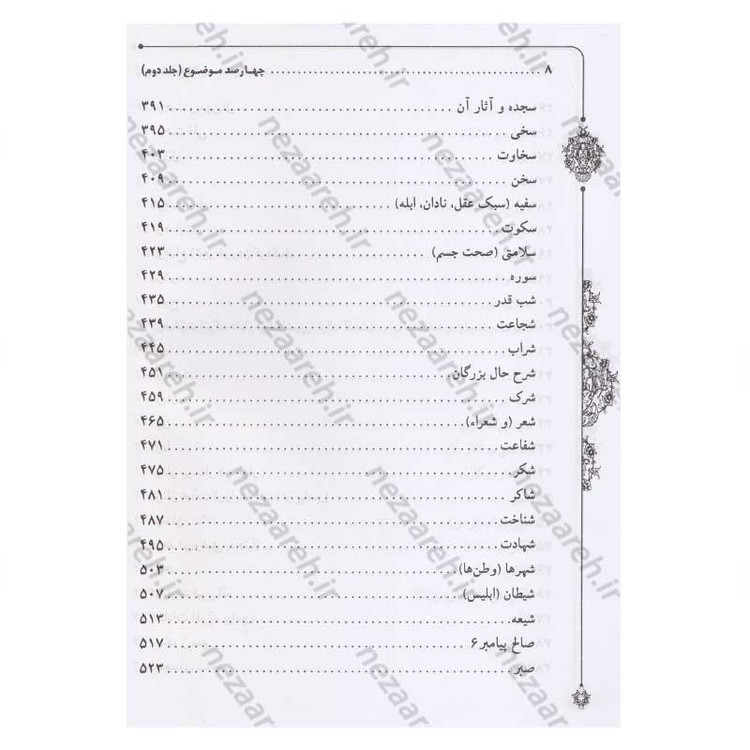 ۸ ............ چهارصد موضوع (جلد دوم)
سجده و آثار آن ............ ۳۹۱
سخی ............ ۳۹۵
سخاوت ............ ۴۰۳
سخن ............ ۴۰۹
سفیه (سبک عقل، نادان، ابله) ............ ۴۱۵
سکوت ............ ۴۱۹
سلامتی (صحت جسم) ............ ۴۲۳
سوره ............ ۴۲۹
شب قدر ............ ۴۳۵
شجاعت ............ ۴۳۹
شراب ............ ۴۴۵
شرح حال بزرگان ............ ۴۵۱
شرک ............ ۴۵۹
شعر (و شعراء) ............ ۴۶۵
شفاعت ............ ۴۷۱
شکر ............ ۴۷۵
شاکر ............ ۴۸۱
شناخت ............ ۴۸۷
شهادت ............ ۴۹۵
شهرها (وطن‌ها) ............ ۵۰۳
شیطان (ابلیس) ............ ۵۰۷
شیعه ............ ۵۱۳
صالح پیامبر۶ ............ ۵۱۷
صبر ............ ۵۲۳
nezaareh.ir